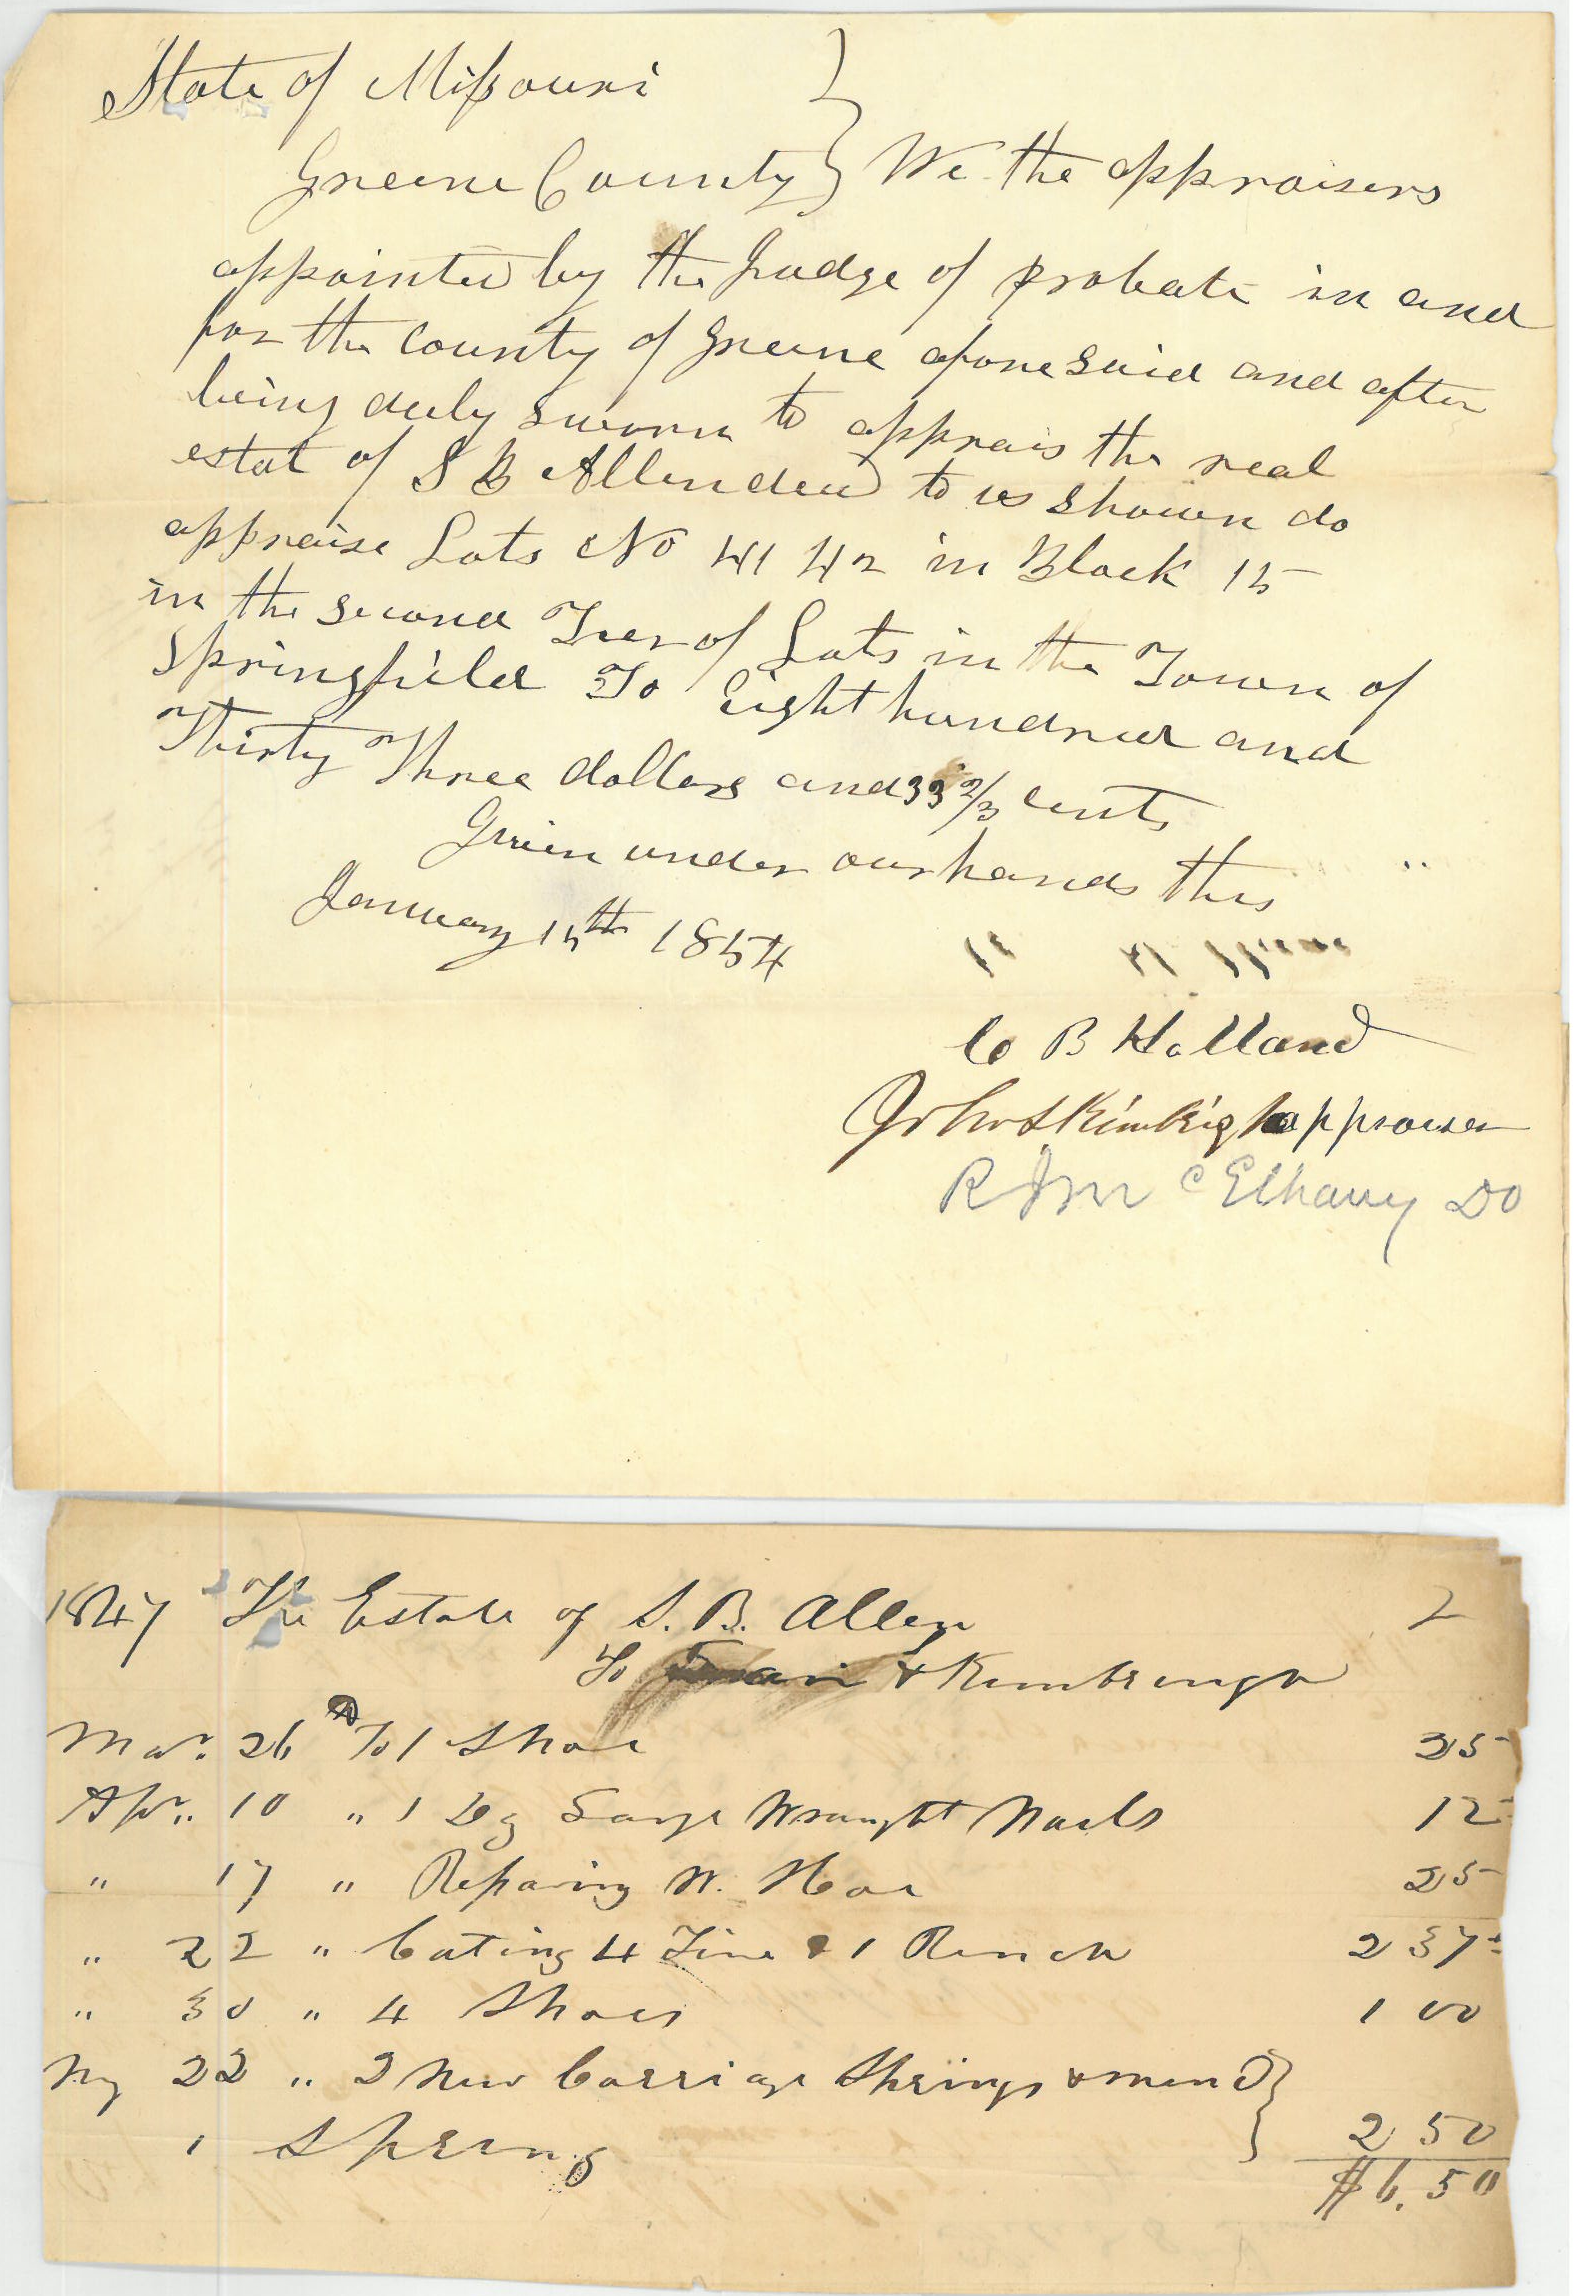 State of Missouri
Greene County } We the appraisers
appointed by the Judge of probate in and
for the county of Greene aforesaid and after
being duly sworn to apprais the real
estat of S B Allen decd to us shown do
appraise Lots No 41 42 in Block 15
in the second Teer of Lots in the Town of
Springfield To Eight hundred and
Thirty Three dollars and 33 2/3 cents
Given under our hands this
January 15th 1854
C B Holland
appraiser
R J M McElhany DO
1847 The Estate of S. B. Allen 2
To & Kimbrough
Mar. 26 To 1 Shoe 25
Apr. 10 " 1 Dz Large Wrought Nails 12
" 17 " Reparing W. Hoe 25
" 22 " Cuting 4 Tire & 1 Rench 2 37
" 30 " 4 Shoes 1 00
My 22 " 2 New Carriage Springs & mend }
1 Spring 2 50
$6.50